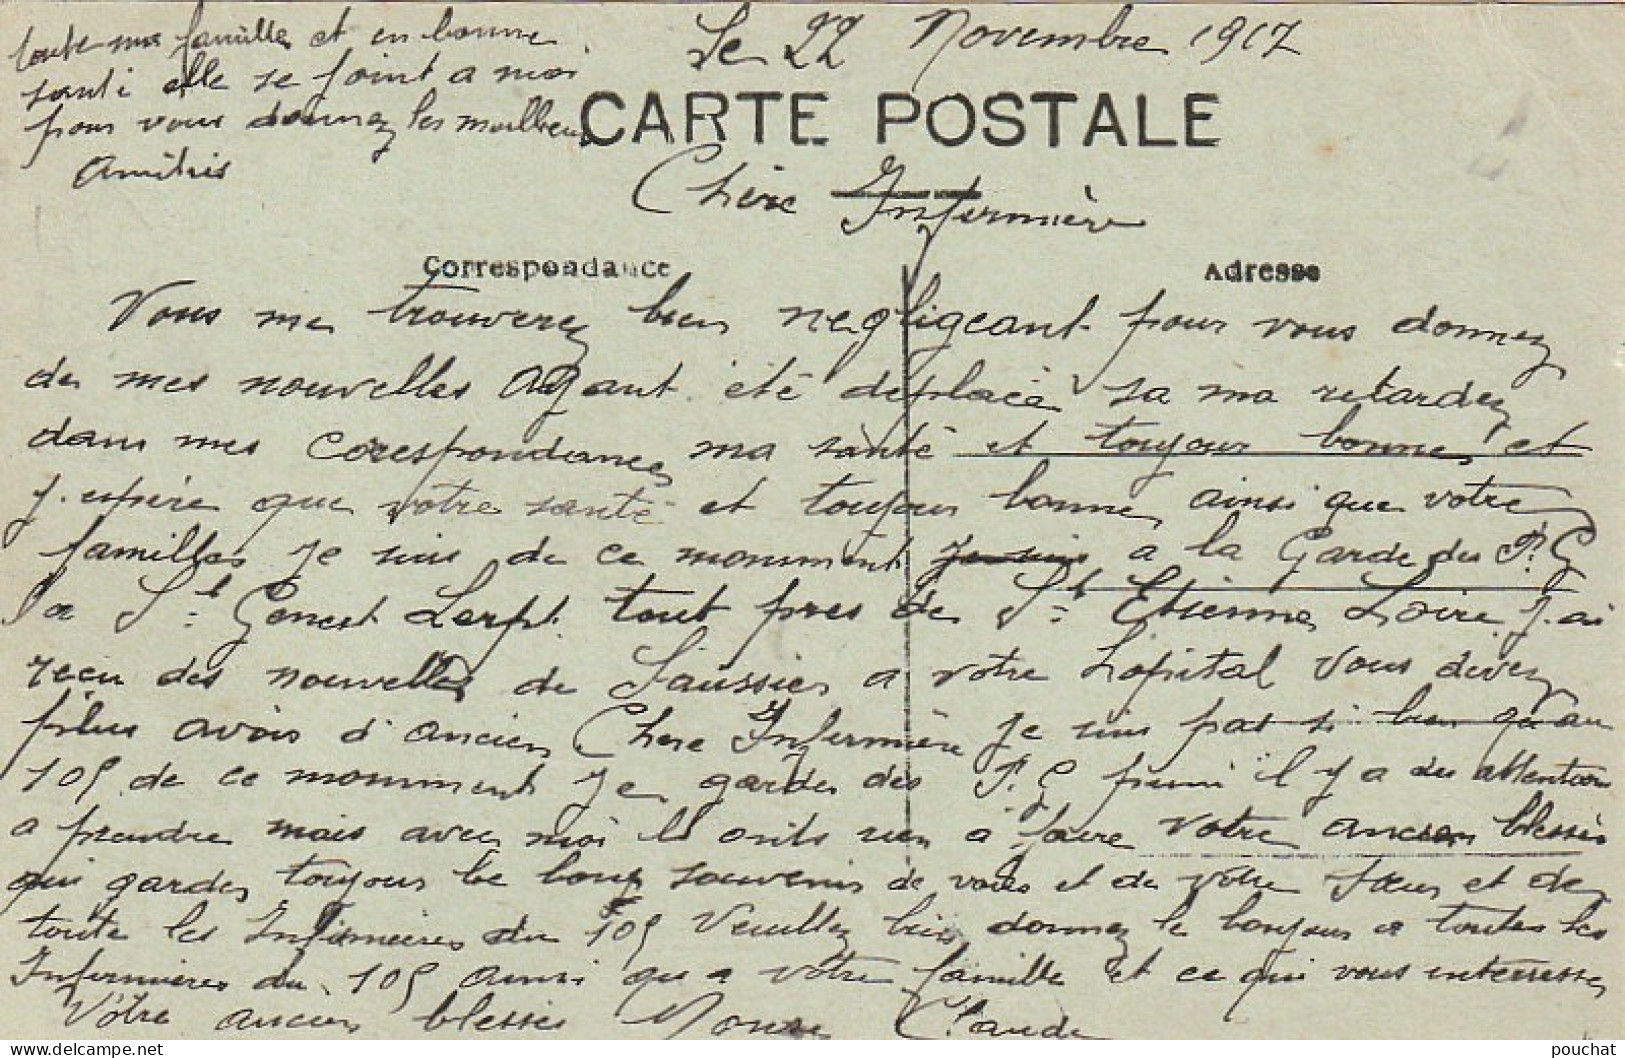 Le 22 Novembre 1917
CARTE POSTALE
Chère Infirmière
Correspondance
Adresse
Vous me trouverez bien negligeant pour vous donnez
de mes nouvelles Ayant été déplacé sa ma retardez
dans mes corespondances ma santé et toujour bonne et
j.espère que votre santé et toujour bonne ainsi que votre
familles je suis de ce momment je suis a la Garde des P. G
a St Genest Lerpt. tout pres de St Etienne Loire j.ai
recu des nouvelles de Saussier a votre hopital Vous devez
plus avoir d'ancien Chere Infirmière je suis pas si bien qu'au
105 de ce momment je garde des P. G il y a des attention
a prendre mais avec moi ils onts rien a faire Votre ancien blessés
qui garde toujour le bon souvenir de vous et de votre Sœur et de
toute les Infirmieres du 105 Veuillez bien donnez le bonjour a toutes les
Infirmières du 105 ainsi qu a votre famille et ce qui vous interesse
Vôtre ancien blesses Claude
toute ma familles et en bonne
santé elle se joint a moi
pour vous donnez les meilleur
Amitiés
pouchat